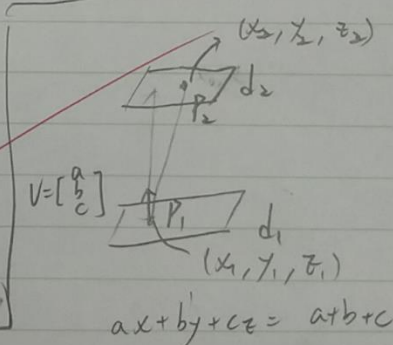 (x₂, y₂, z₂)
d₂
P₂
V=[a b c]
P₁
d₁
(x₁, y₁, z₁)
ax+by+cz = a+b+c